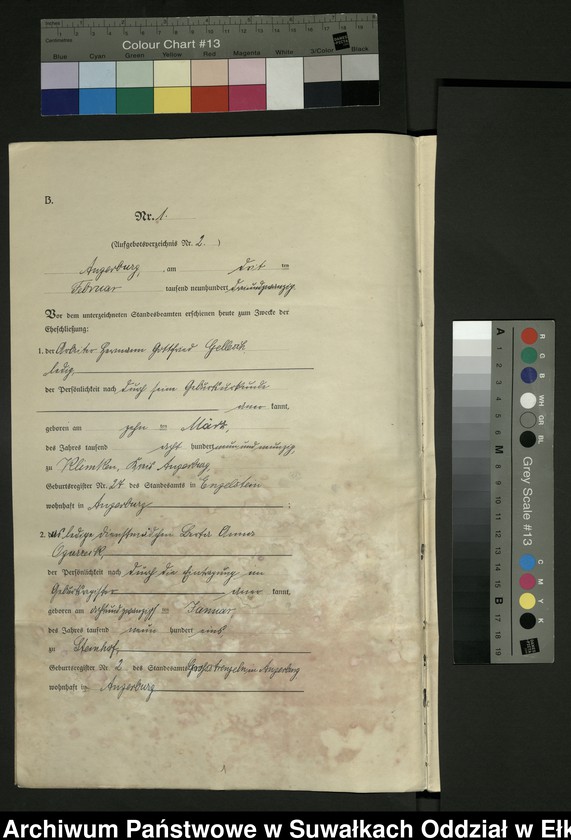 Inches
Centimetres
Colour Chart #13
Blue Cyan Green Yellow Red Magenta White 3/Color Black
B.
Nr. 1.
(Aufgebotsverzeichnis Nr. 2. )
Angerburg, am Drit ten
Februar tausend neunhundert dreiundzwanzig.
Vor dem unterzeichneten Standesbeamten erschienen heute zum Zwecke der
Eheschließung:
1. der Arbeiter Hermann Gottfried
ledig
der Persönlichkeit nach durch seine Geburtsurkunde
kannt,
geboren am zehn ten März,
des Jahres tausend acht hundert neunundneunzig,
zu Klimken, Kreis Angerburg,
Geburtsregister Nr. 27 des Standesamts in Engelstein
wohnhaft in Angerburg ;
2. ledige Dienstmädchen Berta Anna
der Persönlichkeit nach durch die Eintragung im
Geburtsregister kannt,
geboren am achtundzwanzigs ten Januar
des Jahres tausend neun hundert eins
zu Steinhof,
Geburtsregister Nr. 2 des Standesamts in Angerburg
wohnhaft in Angerburg
1
A 1 2 3 4 5 6 M 8 9 10 11 12 13 14 15 B 17 18 19
R G B WH GR BL
Grey Scale #13
C M Y K
Archiwum Państwowe w Suwałkach Oddział w Ełk